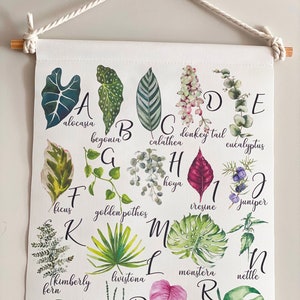 A B C D E
alocasia begonia calathea donkey tail eucalyptus
F G H I J
ficus golden pothos hoya iresine juniper
K L M N
kimberly fern livistona monstera nettle
R